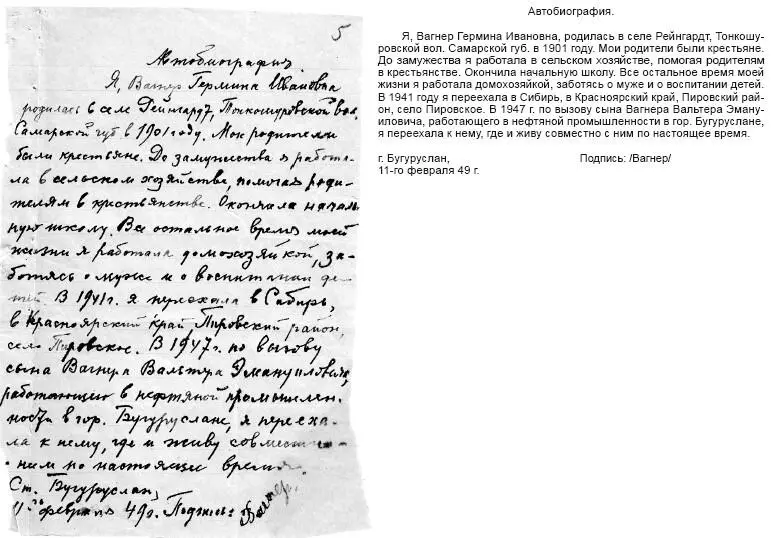 5
Автобиография.
Я, Вагнер Гермина Ивановна
родилась в селе Рейнгардт, Тонкошуровской вол.
Самарской губ в 1901 году. Мои родители
были крестьяне. До замужества я работа-
ла в сельском хозяйстве, помогая роди-
телям в крестьянстве. Окончила началь-
ную школу. Все остальное время моей
жизни я работала домохозяйкой, за-
ботясь о муже и о воспитании де-
тей. В 1941 г. я переехала в Сибирь,
в Красноярский край, Пировский район,
село Пировское. В 1947 г. по вызову
сына Вагнера Вальтера Эмануиловича,
работающего в нефтяной промышлен-
ности в гор. Бугуруслане, я перееха-
ла к нему, где и живу совместно
ним по настоящее время.
Ст. Бугуруслан,
11го февраля 49г. Подпись: Вагнер.
Автобиография.
Я, Вагнер Гермина Ивановна, родилась в селе Рейнгардт, Тонкошу-
ровской вол. Самарской губ. в 1901 году. Мои родители были крестьяне.
До замужества я работала в сельском хозяйстве, помогая родителям
в крестьянстве. Окончила начальную школу. Все остальное время моей
жизни я работала домохозяйкой, заботясь о муже и о воспитании детей.
В 1941 году я переехала в Сибирь, в Красноярский край, Пировский рай-
он, село Пировское. В 1947 г. по вызову сына Вагнера Вальтера Эману-
иловича, работающего в нефтяной промышленности в гор. Бугуруслане,
я переехала к нему, где и живу совместно с ним по настоящее время.
г. Бугуруслан, Подпись: /Вагнер/
11-го февраля 49 г.